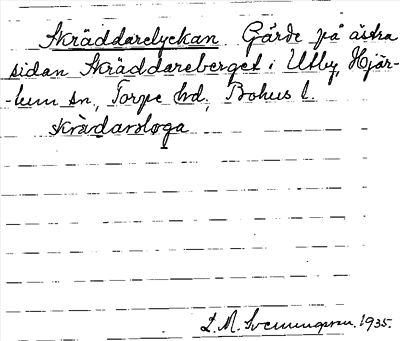 Skräddarelyckan Gärde på östra
sidan Skräddareberget i Utby, Hjär-
-tum sn., Torpe hd., Bohus l.
Skrädarsloga
L. M. Svenungsson. 1935.